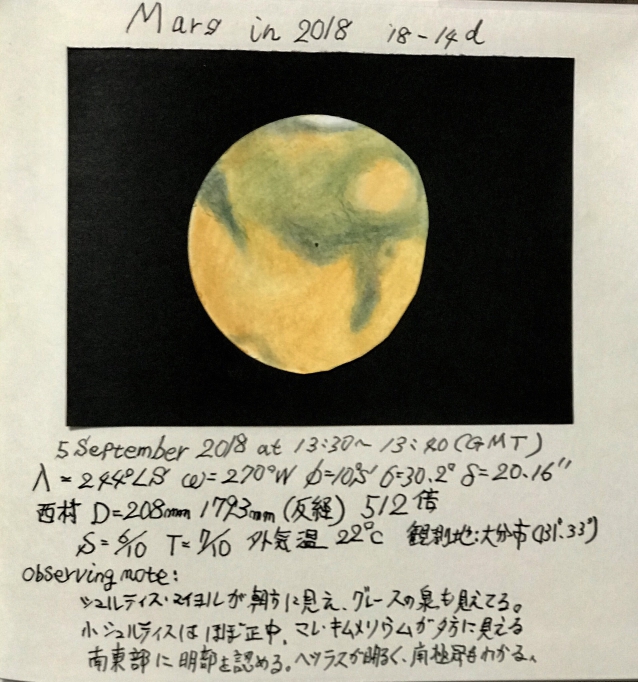 Mars in 2018 18-14d
5 September 2018 at 13:30~ 13:40 (GMT)
λ = 244°LS ω=270°W φ=10°S δ=30.2° δ=20.16"
西村 D=208mm 1793mm (反経) 512倍
S=6/10 T=7/10 外気温 22°C 観測地:大分市(131°.33°)
Observing note:
シュルティス・マイヨルが朝方に見え、グレースの泉も見えてる。
小シュルティスはほぼ正中、マレ・キムメリウムが夕方に見える
南東部に明部を認める。ヘラスが明るく、南極冠もわかる。